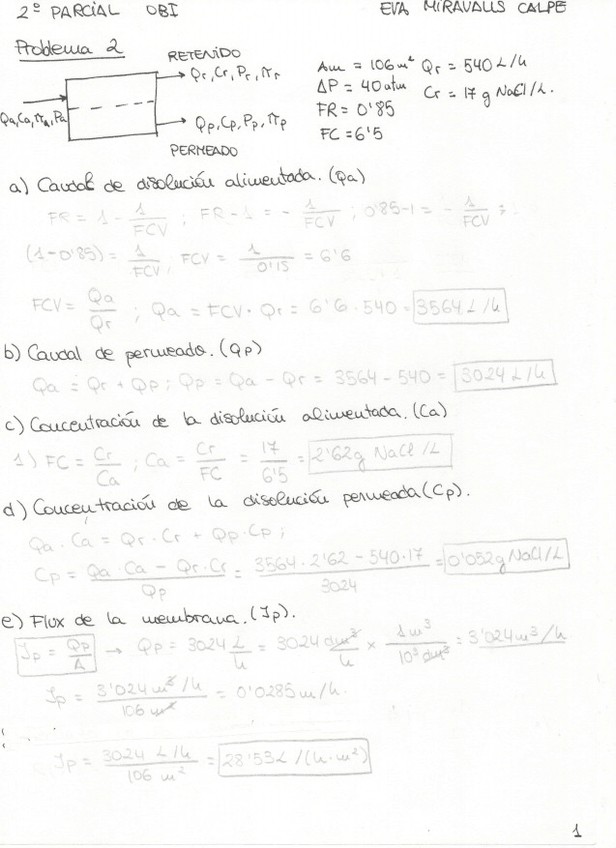 2º PARCIAL OBI EVA MIRAVALLS CALPE
Problema 2
RETENIDO
Qr, Cr, Pr, πr
Qa, Ca, πa, Pa
Qp, Cp, Pp, πp
PERMEADO
Am = 106 m² Qr = 540 L/h
ΔP = 40 atm Cr = 17 g NaCl/L.
FR = 0'85
FC = 6'5
a) Caudal de disolución alimentada. (Qa)
FR = 1 - 1/FCV ; FR - 1 = - 1/FCV ; 0'85-1 = - 1/FCV ;
(1-0'85) = 1/FCV, FCV = 1/0'15 = 6'6
FCV = Qa/Qr ; Qa = FCV · Qr = 6'6 · 540 = 3564 L/h
b) Caudal de permeado. (Qp)
Qa = Qr + Qp ; Qp = Qa - Qr = 3564 - 540 = 3024 L/h
c) Concentración de la disolución alimentada. (Ca)
1) FC = Cr/Ca ; Ca = Cr/FC = 17/6'5 = 2'62g NaCl /L
d) Concentración de la disolución permeada (Cp).
Qa · Ca = Qr · Cr + Qp · Cp ;
Cp = Qa · Ca - Qr · Cr/Qp = 3564 · 2'62 - 540 · 17/3024 = 0'052g NaCl/L
e) Flux de la membrana. (Jp).
Jp = Qp/A → Qp = 3024 L/h = 3024 dm³/h × 1m³/10³ dm³ = 3'024 m³/h
Jp = 3'024 m³/h/106 m² = 0'0285 m/h.
Jp = 3024 L/h/106 m² = 28'53 L/(h·m²)
1